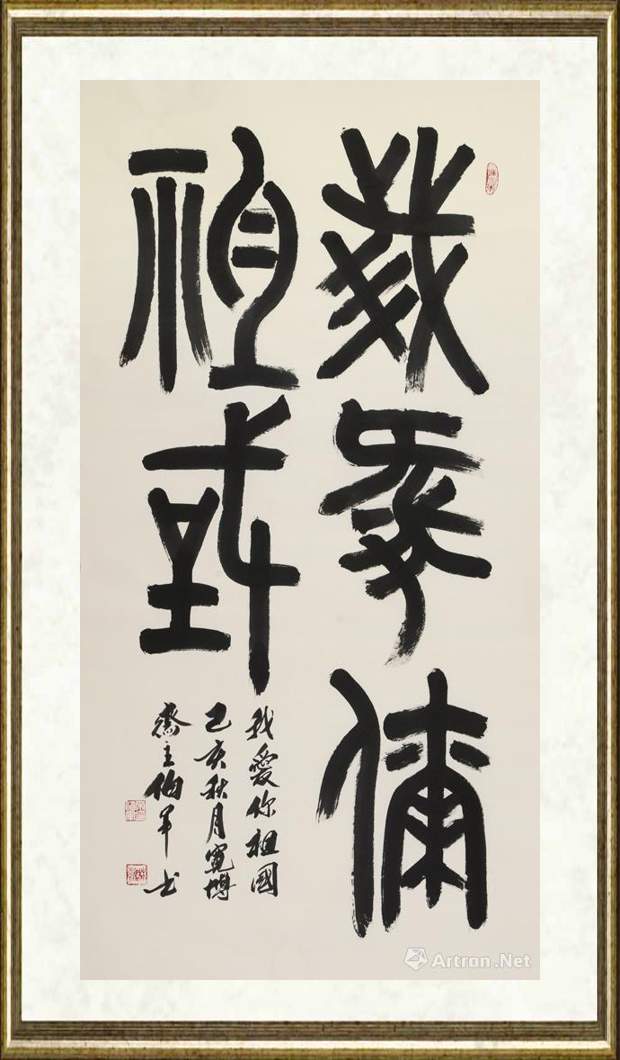 我愛你
祖國
我愛你祖國
己亥秋月寬博
齋主伯軍书
Artron.Net